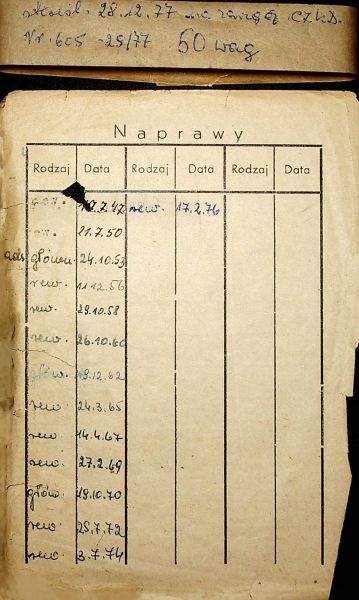 28.12.77 na CZKD.
Nr. 605-25/77 50 wag
Naprawy
Rodzaj Data Rodzaj Data Rodzaj Data
.7.47 rew. 17.2.76
rew. 21.7.50
główn. 24.10.53
rew. 11.12.56
rew. 29.10.58
rew. 26.10.60
główn. 19.12.62
rew. 24.3.65
rew. 14.4.67
rew. 27.2.69
główn. 19.10.70
rew. 25.7.72
rew. 3.7.74